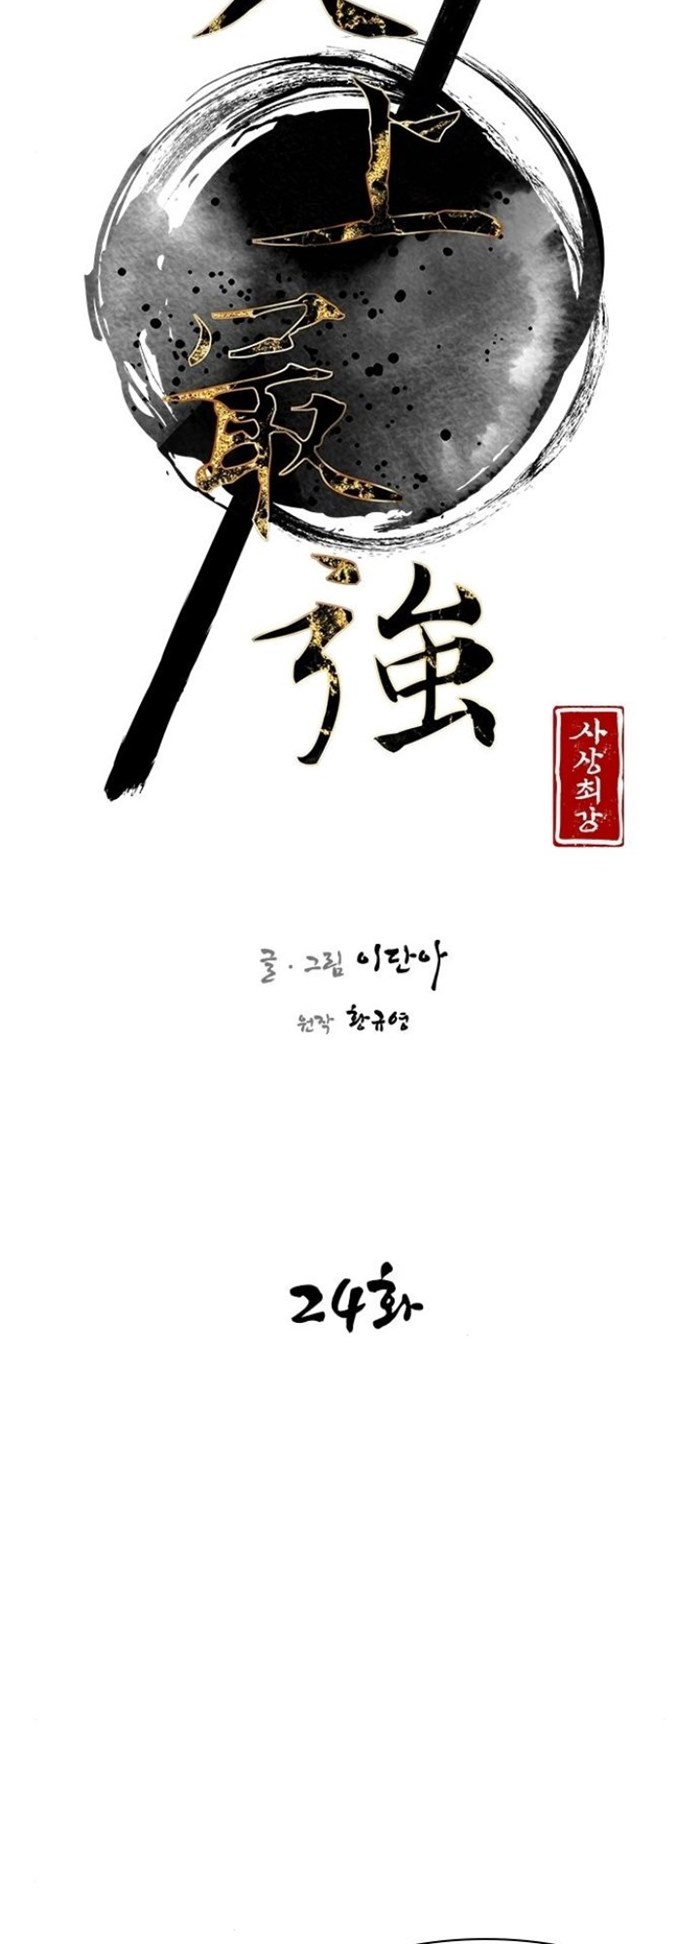 上
最
強
사상최강
글·그림 이단아
원작 황규영
24화